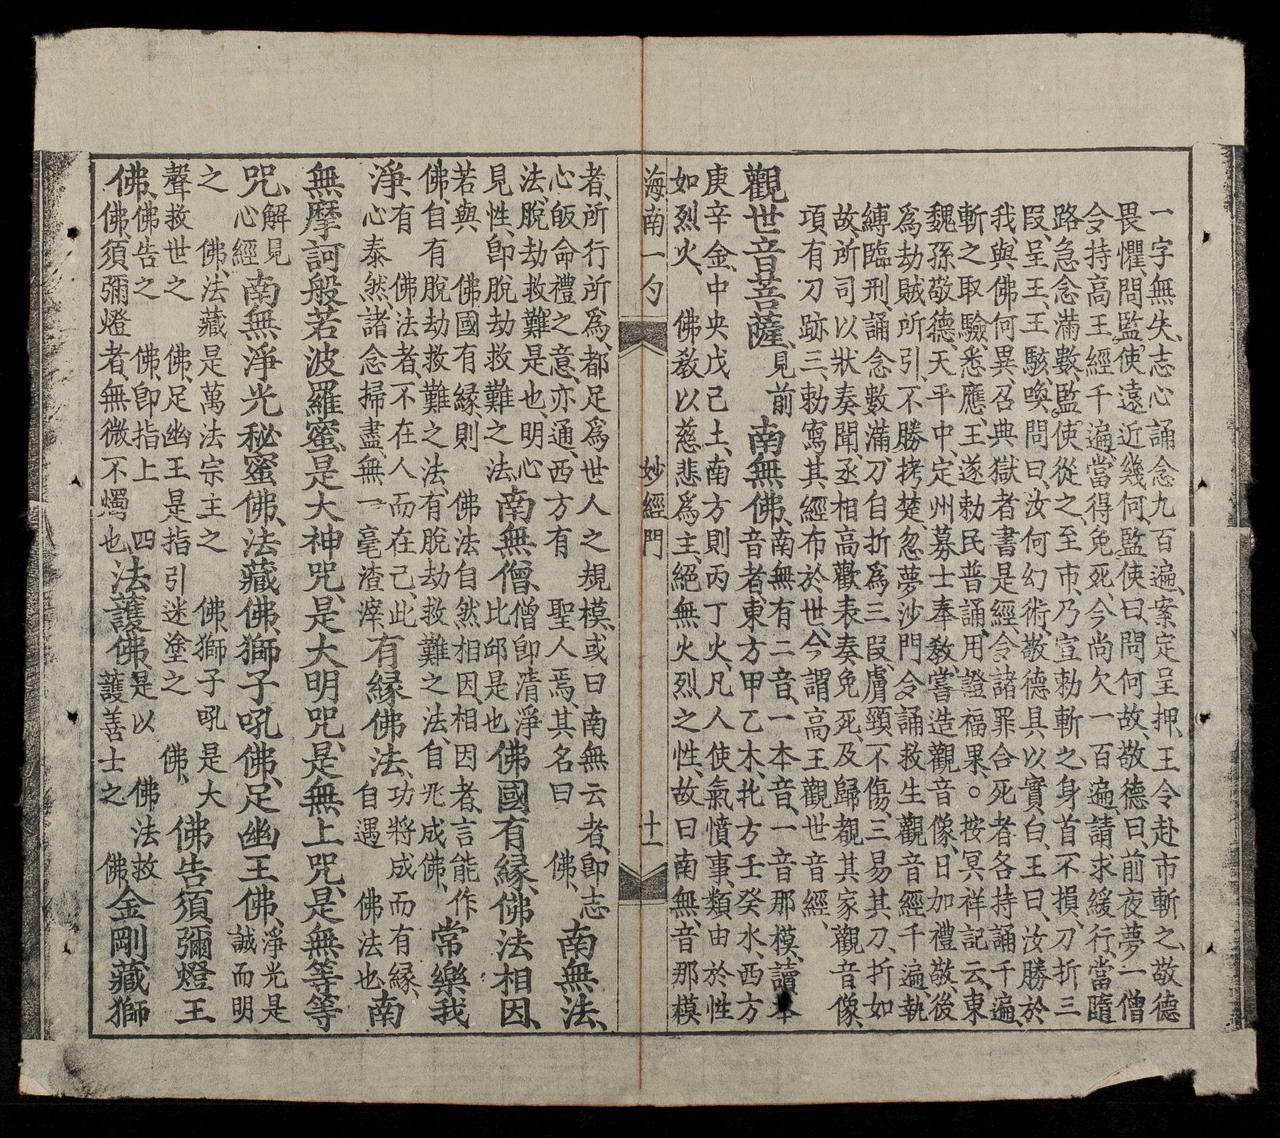 一字無失、志心誦念九百遍、案定呈押、王令赴市斬之、敬德
畏懼、問監使、遠近幾何、監使曰、問何故、敬德曰、前夜夢一僧
令持高王經千遍、當得免死、今尚欠一百遍、請求緩行、當隨
路急念滿數、監使從之、至市、乃宣勅斬之、身首不損、刀折三
段、呈王、王駭喚問曰、汝何幻術、敬德具以實白、王曰、汝勝於
我、與佛何異、召典獄者書是經、令諸罪合死者各持誦千遍、
斬之取驗、悉應、王遂勅民普誦、用證福果。按冥祥記云、東
魏孫敬德天平中、定州募士奉教、嘗造觀音像、日加禮敬、後
為劫賊所引、不勝拷楚、忽夢沙門令誦救生觀音經千遍、執
縛臨刑、誦念數滿、刀自折為三段、膚頸不傷、三易其刀、折如
故、所司以狀奏聞、丞相高歡表奏免死、及歸、覩其家觀音像、
項有刀跡三、勅寫其經布於世、今謂高王觀世音經、
觀世音菩薩、見前 南無佛、南無有二音、一本音、一音那模、讀本音者、東方甲乙木、北方壬癸水、西方
庚辛金、中央戊己土、南方則丙丁火、凡人使氣憤事、類由於性
如烈火、 佛教以慈悲為主、絕無火烈之性、故曰南無、音那模
海南一勺 妙經門 十一
者、所行所為、都足為世人之規模、或曰南無云者、即志心皈命禮之意、亦通、西方有 聖人焉、其名曰 佛、南無法、
法、脫劫救難是也、明心見性、即脫劫救難之法、南無僧、僧即清淨比邱是也 佛國有緣、佛法相因、
若與 佛國有緣則 佛法自然相因、相因者、言能作佛、自有脫劫救難之法、有脫劫救難之法自兆成佛、常樂我
淨、有 佛法者、不在人而在己、此心泰然、諸念掃盡、無一毫渣滓、有緣佛法、功將成而有緣、自遇 佛法也、南
無摩訶般若波羅蜜、是大神咒、是大明咒、是無上咒、是無等等
咒、解見心經 南無淨光秘蜜佛、法藏佛、獅子吼佛、足幽王佛、淨光是誠而明
之 佛、法藏是萬法宗主之 佛、獅子吼是大聲救世之 佛、足幽王是指引迷塗之 佛、佛告須彌燈王
佛、佛告之 佛、即指上四佛、須彌燈者無微不燭也 法護佛、是以 佛法救護善士之 佛、金剛藏獅